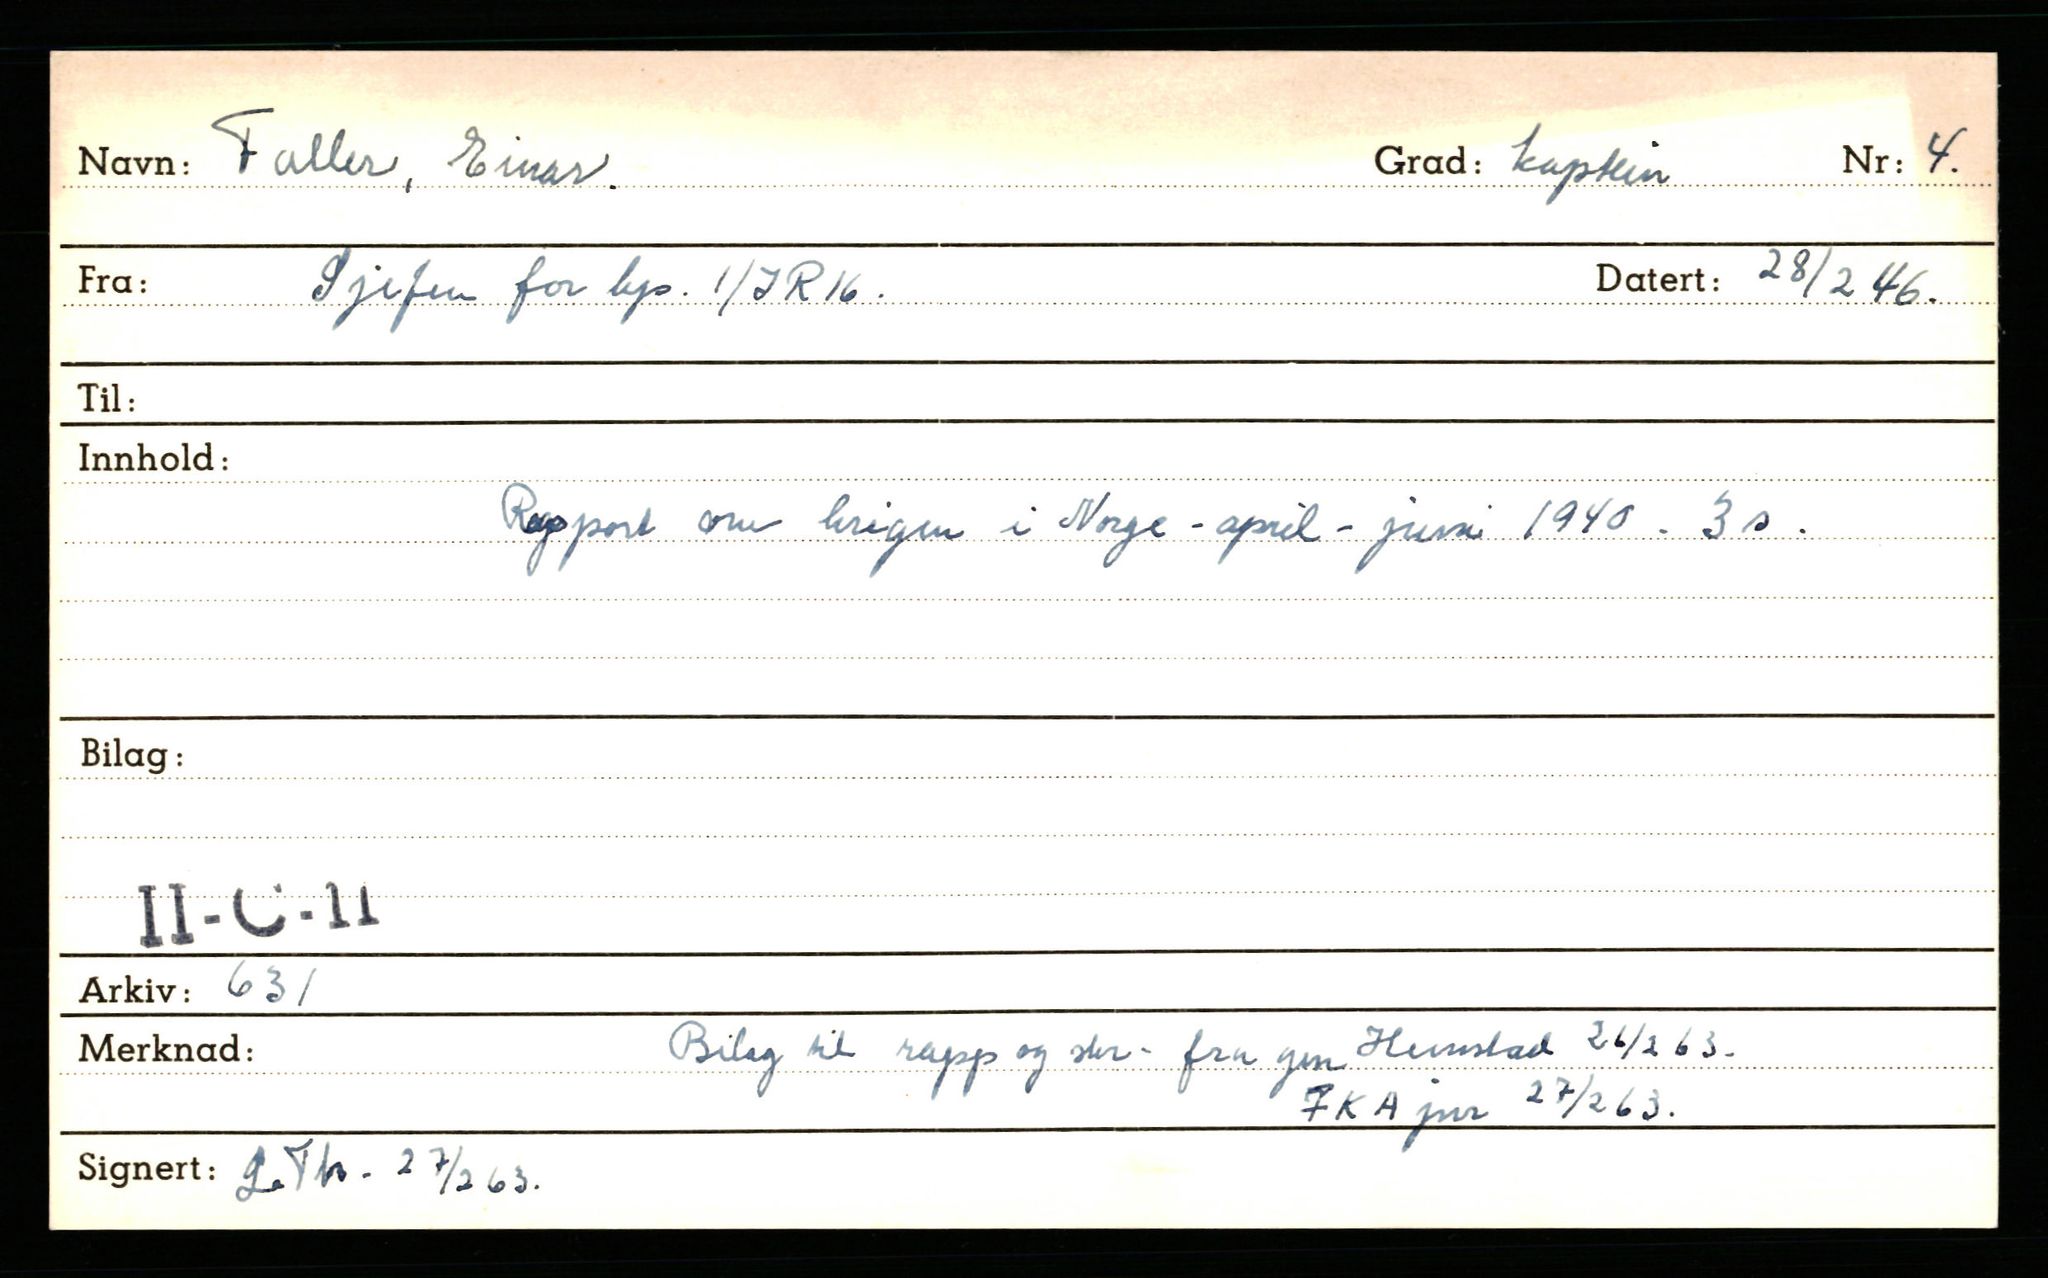 Navn: Faller, Einar. Grad: kaptein Nr: 4.
Fra: Sjefen for kp. 1/IR 16. Datert: 28/2 46.
Til:
Innhold:
Rapport om krigen i Norge - april - juni 1940. 3 s.
Bilag:
II-C-11
Arkiv: 631
Merknad: Bilag til rapp og skr. fra gen 26/2 63.
FKA jnr 27/2 63.
Signert: 27/2 63.